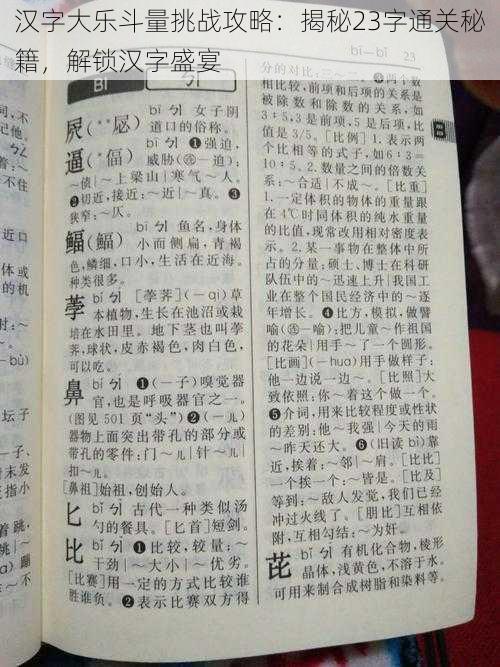 汉字大乐斗量挑战攻略：揭秘23字通关秘
籍，解锁汉字盛宴
bī—bǐ 23
BI ㄅㄧ
屄(*㞏) bī ㄅㄧ 女子阴
道口的俗称。
逼(*偪) bī ㄅㄧ ❶强迫，
威胁(⊕—迫)：
~债|~上梁山|寒气~人。
❷切近，接近：~近|~真。❸
狭窄：~仄。
鲾(鰏) bī ㄅㄧ 鱼名，身体
小而侧扁，青褐
色，鳞细，口小，生活在近海。
种类很多。
荸 bí ㄅㄧˊ [荸荠](-qi)草
本植物，生长在池沼或栽
培在水田里。地下茎也叫荸
荠，球状，皮赤褐色，肉白色，
可以吃。
鼻 bí ㄅㄧˊ ❶(—子)嗅觉器
官，也是呼吸器官之一。
(图见 501 页“头”)❷(—儿)
器物上面突出带孔的部分或
带孔的零件：门~|针~儿|
扣~儿。
[鼻祖]始祖，创始人。
匕 bǐ ㄅㄧˇ 古代一种类似汤
勺的餐具。[匕首]短剑。
比 bǐ ㄅㄧˇ ❶比较，较量：~
干劲|~大小|~优劣。
[比赛]用一定的方式比较谁
胜谁负。❷表示比赛双方得
分的对比：三~二。❸两个数
相比较，前项和后项的关系是
被除数和除数的关系，如
3∶5，3是前项，5是后项，比
值是 3/5。[比例] 1. 表示两
个比相等的式子，如6∶3＝
10∶5。2. 数量之间的倍数关
系：~合适|不成~。[比重]
1. 一定体积的物体的重量跟
在 4℃时同体积的纯水重量
的比值，现常改用相对密度表
示。2. 某一事物在整体中所
占的分量：硕士、博士在科研
队伍中的~迅速上升|我国工
业在整个国民经济中的~逐
年增长。❹比方，模拟，做譬
喻(⊕—喻)：把儿童~作祖国
的花朵|用手~了一个圆形。
[比画](-hua)用手做样子：
他一边说一边~。[比照]大
致依照：你~着这个做一个。
❺介词，用来比较程度或性状
的差别：他~我强|今天的雨
~昨天还大。❻(旧读 bì)靠
近，挨着：~邻|~肩。[比比]
一个挨一个：~皆是。[比及]
等到：~敌人发觉，我们已经
冲过火线了。[朋比]互相依
附，互相勾结：~为奸。
芘 bǐ ㄅㄧˇ 有机化合物，棱形
晶体，浅黄色，不溶于水。
可用来制合成树脂和染料等。
B